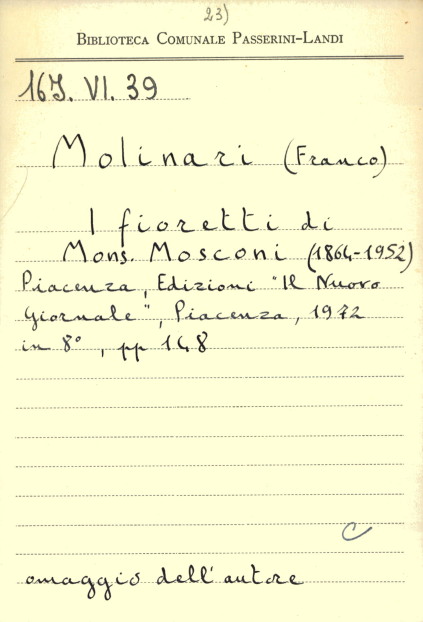 23)
BIBLIOTECA COMUNALE PASSERINI-LANDI
16J. VI. 39
Molinari (Franco)
I fioretti di
Mons. Mosconi (1864-1952)
Piacenza, Edizioni "Il Nuovo
Giornale", Piacenza, 1972
in 8°, pp 148
C
omaggio dell'autore